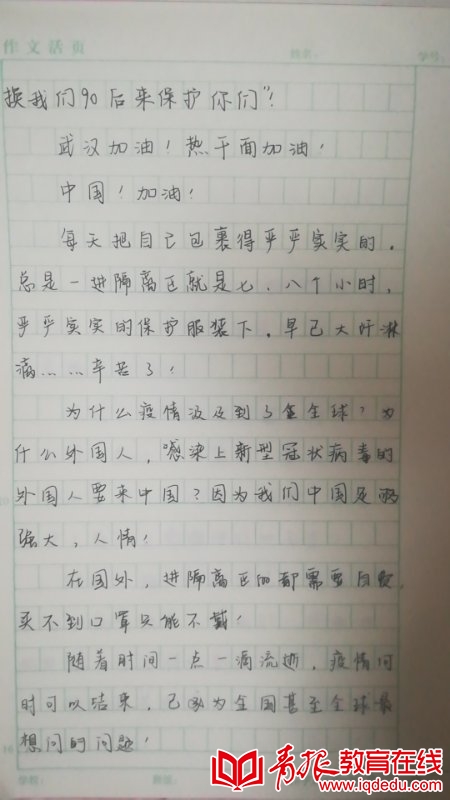 作文活页 姓名: 学号:
换我们90后来保护你们"!
武汉加油!热干面加油!
中国!加油!
每天把自己包裹得严严实实的,
总是一进隔离区就是七、八个小时,
严严实实的保护服装下,早已大汗淋
漓……辛苦了!
为什么疫情波及到了全球?为
什么外国人,感染上新型冠状病毒的
外国人要来中国?因为我们中国足够
强大,人情!
在国外,进隔离区的都需要自费,
买不到口罩只能不戴!
随着时间一点一滴流逝,疫情何
时可以结束,已成为全国甚至全球最
想问的问题!
学校: 班级:
青报教育在线
www.iqdedu.com